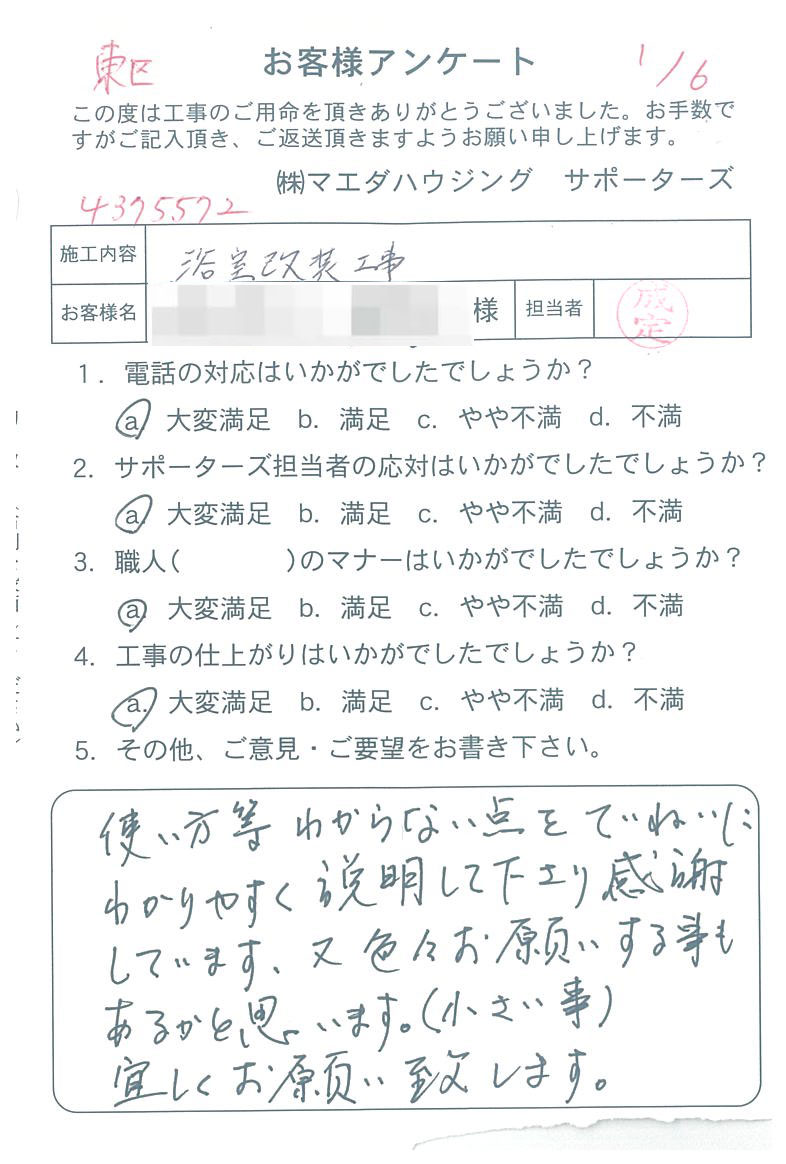 東区
お客様アンケート
1/6
この度は工事のご用命を頂きありがとうございました。お手数で
すがご記入頂き、ご返送頂きますようお願い申し上げます。
㈱マエダハウジング サポーターズ
4375572
施工内容 浴室改装工事
お客様名 様 担当者 成定
1. 電話の対応はいかがでしたでしょうか?
a. 大変満足 b. 満足 c. やや不満 d. 不満
2. サポーターズ担当者の応対はいかがでしたでしょうか?
a. 大変満足 b. 満足 c. やや不満 d. 不満
3. 職人( )のマナーはいかがでしたでしょうか?
a. 大変満足 b. 満足 c. やや不満 d. 不満
4. 工事の仕上がりはいかがでしたでしょうか?
a. 大変満足 b. 満足 c. やや不満 d. 不満
5. その他、ご意見・ご要望をお書き下さい。
使い方等わからない点をていねいに
わかりやすく説明して下さり感謝
しています、又色々お願いする事も
あるかと思います。(小さい事)
宜しくお願い致します。